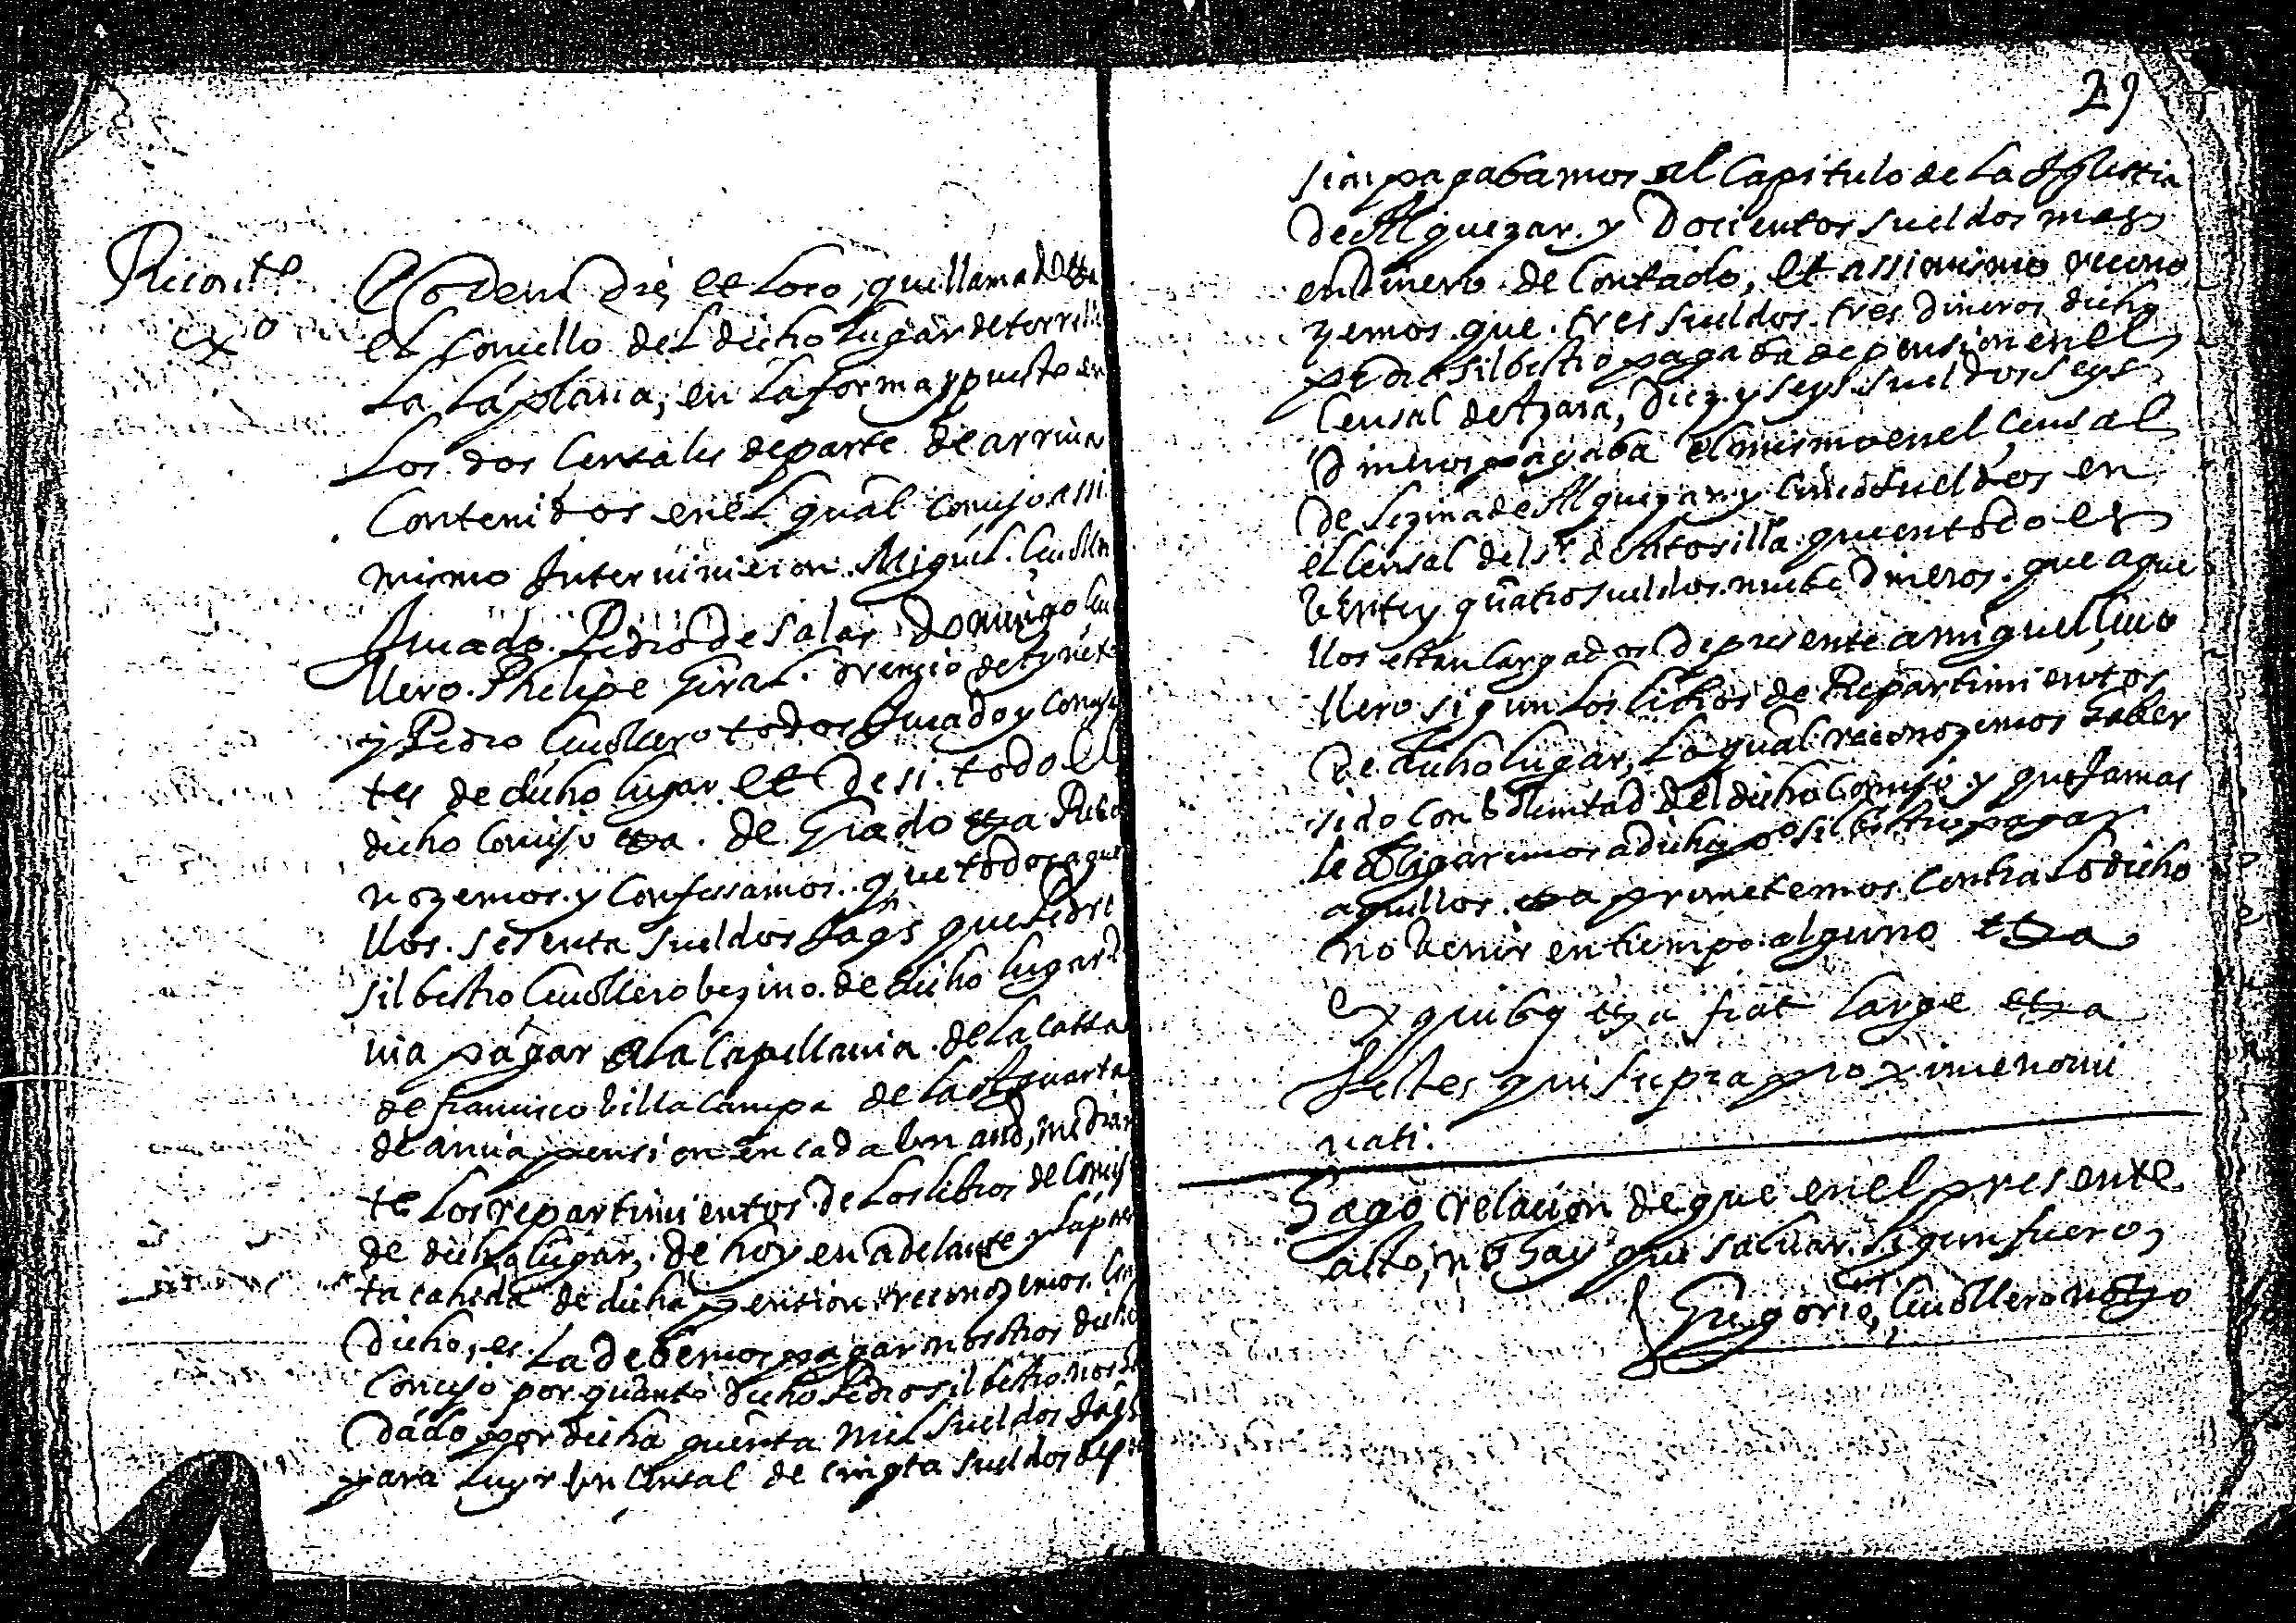 Recont.to
Eodem Die, et Loco, que llamado etta
el Concello del dicho lugar de torrella
La La plana, en la forma y puesto en
Los dos Censales de parte de arriua
Contenidos en el qual concejo assi
mismo Interuinieron Miguel Cauallero
Jurado. Pedro de salas Domingo Caua
llero. Phelipe Giral. orencio de
y Pedro Cauallero todos Jurado y Conceja
tes de dicho lugar et Desi. todo el
dicho Concejo etta. de Grado etta Reco
nozemos. y Confessamos. que todos aque
llos. sesenta sueldos Jaqs que Pedro
silbestro Cauallero bezino. de dicho lugar
uia pagar a la Capellania. de la Cassa
de francisco billa Campa de La Alquarta
de anua pension en cada Un año, median
te Los repartimientos de Los libros de Concejo
de dicho lugar, de hoy en adelante y La pnte
ta cahida de dicha pension reconozemos.
Dicho, es. La debemos pagar nosotros dicho
Concejo por quanto dicho Pedro silbestro nos a
Dado por dicha quenta mil sueldos Jaqs
para Luyr Un Censal de cinqta sueldos de pen
29
sion pagabamos al Capitulo de La Iglessia
De Alquezar. y Docientos sueldos mas
en Dinero de Contado, et assimismo recono
zemos. que. tres sueldos. tres dineros dicho
Pedro silbestro pagaba de pension en el
Censal de Azara, Diez y seys sueldos seys
Dineros pagaba el mismo en el Censal
De Lezina de Alquezar y cinco sueldos en
el Censal del sr. de Artosilla. que en todo es
Vente y quatro sueldos. nuebe Dineros. que aque
llos estan Cargados De presente a miguel Caua
llero sigun Los libros de Repartimientos
De dicho lugar, Lo qual reconozemos haber
sido con boluntad del dicho Concejo y que Jamas
le obligaremos a dicho po silbestro pagar
aquellos. etta prometemos Contra Lo dicho
no Venir en tiempo alguno etta
Ex quibq etta fiat large etta
Testes qui supra proxime nomi
nati.
Hago relacion de que en el presente
acto, no hay que saluar. sigun fuero,
Gregorio, Cauallero notto